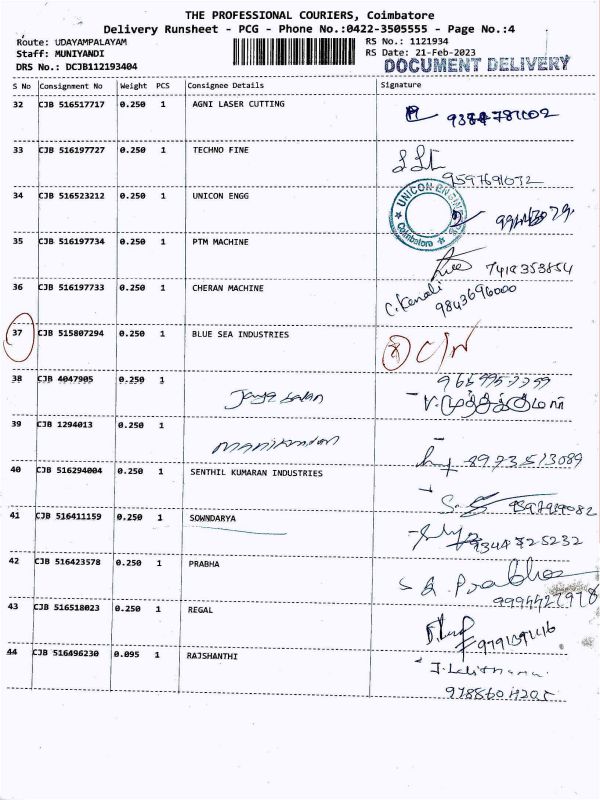 THE PROFESSIONAL COURIERS, Coimbatore
Delivery Runsheet - PCG - Phone No.:0422-3505555 - Page No.:4
Route: UDAYAMPALAYAM RS No.: 1121934
Staff: MUNIYANDI RS Date: 21-Feb-2023
DRS No.: DCJB112193404 DOCUMENT DELIVERY
S No Consignment No Weight PCS Consignee Details Signature
32 CJB 516517717 0.250 1 AGNI LASER CUTTING
33 CJB 516197727 0.250 1 TECHNO FINE
9597691032
34 CJB 516523212 0.250 1 UNICON ENGG
UNICON ENGINE
Coimbatore
35 CJB 516197734 0.250 1 PTM MACHINE
7418353854
36 CJB 516197733 0.250 1 CHERAN MACHINE
9843696000
37 CJB 515807294 0.250 1 BLUE SEA INDUSTRIES
38 CJB 4047905 0.250 1
39 CJB 1294013 0.250 1
Manikandan
40 CJB 516294004 0.250 1 SENTHIL KUMARAN INDUSTRIES
8973513089
41 CJB 516411159 0.250 1 SOWNDARYA
9344725232
42 CJB 516423578 0.250 1 PRABHA
Prabha
43 CJB 516518023 0.250 1 REGAL
44 CJB 516496230 0.095 1 RAJSHANTHI
9788604205